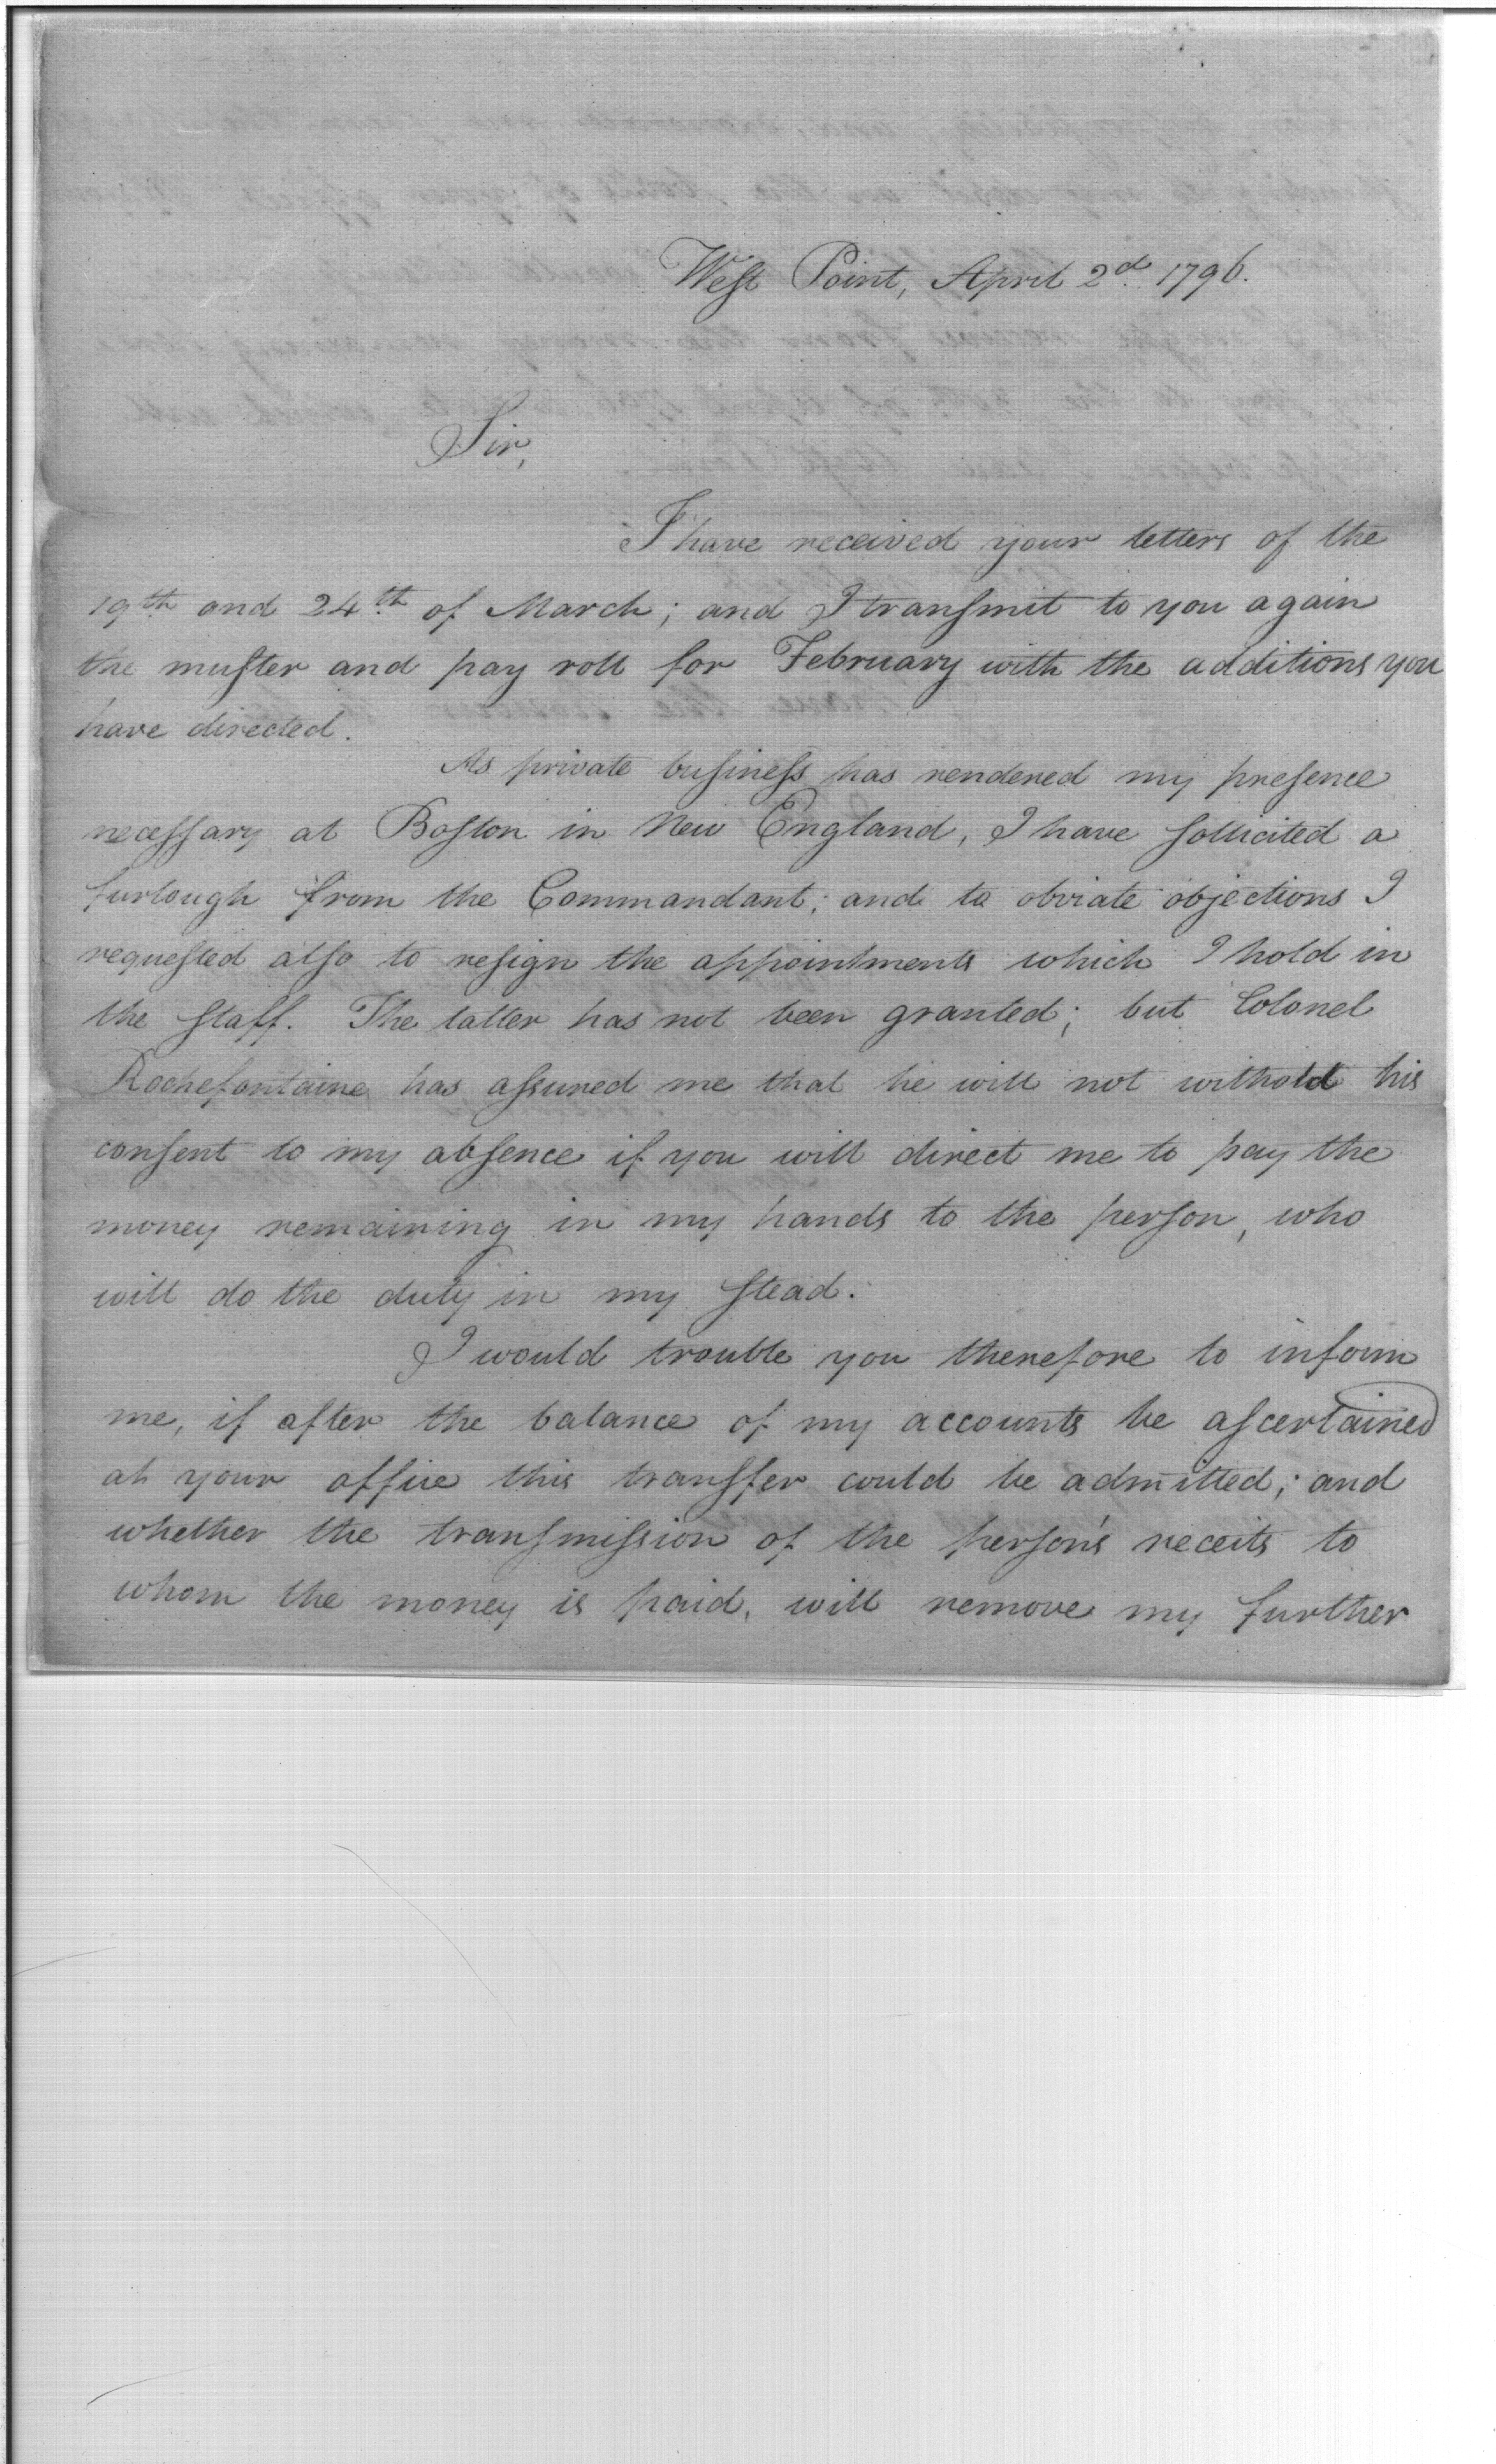 West Point, April 2d. 1796.
Sir,
I have received your letters of the
19th. and 24th. of March; and I transmit to you again
the muster and pay roll for February with the additions you
have directed.
As private business has rendered my presence
necessary at Boston in New England, I have sollicited a
furlough from the Commandant; and to obviate objections I
requested also to resign the appointments which I hold in
the staff. The latter has not been granted; but Colonel
Rochefontaine has assured me that he will not withold his
consent to my absence if you will direct me to pay the
money remaining in my hands to the person, who
will do the duty in my stead.
I would trouble you therefore to inform
me, if after the balance of my accounts be ascertained
at your office this transfer could be admitted; and
whether the transmission of the person's receits to
whom the money is paid, will remove my further